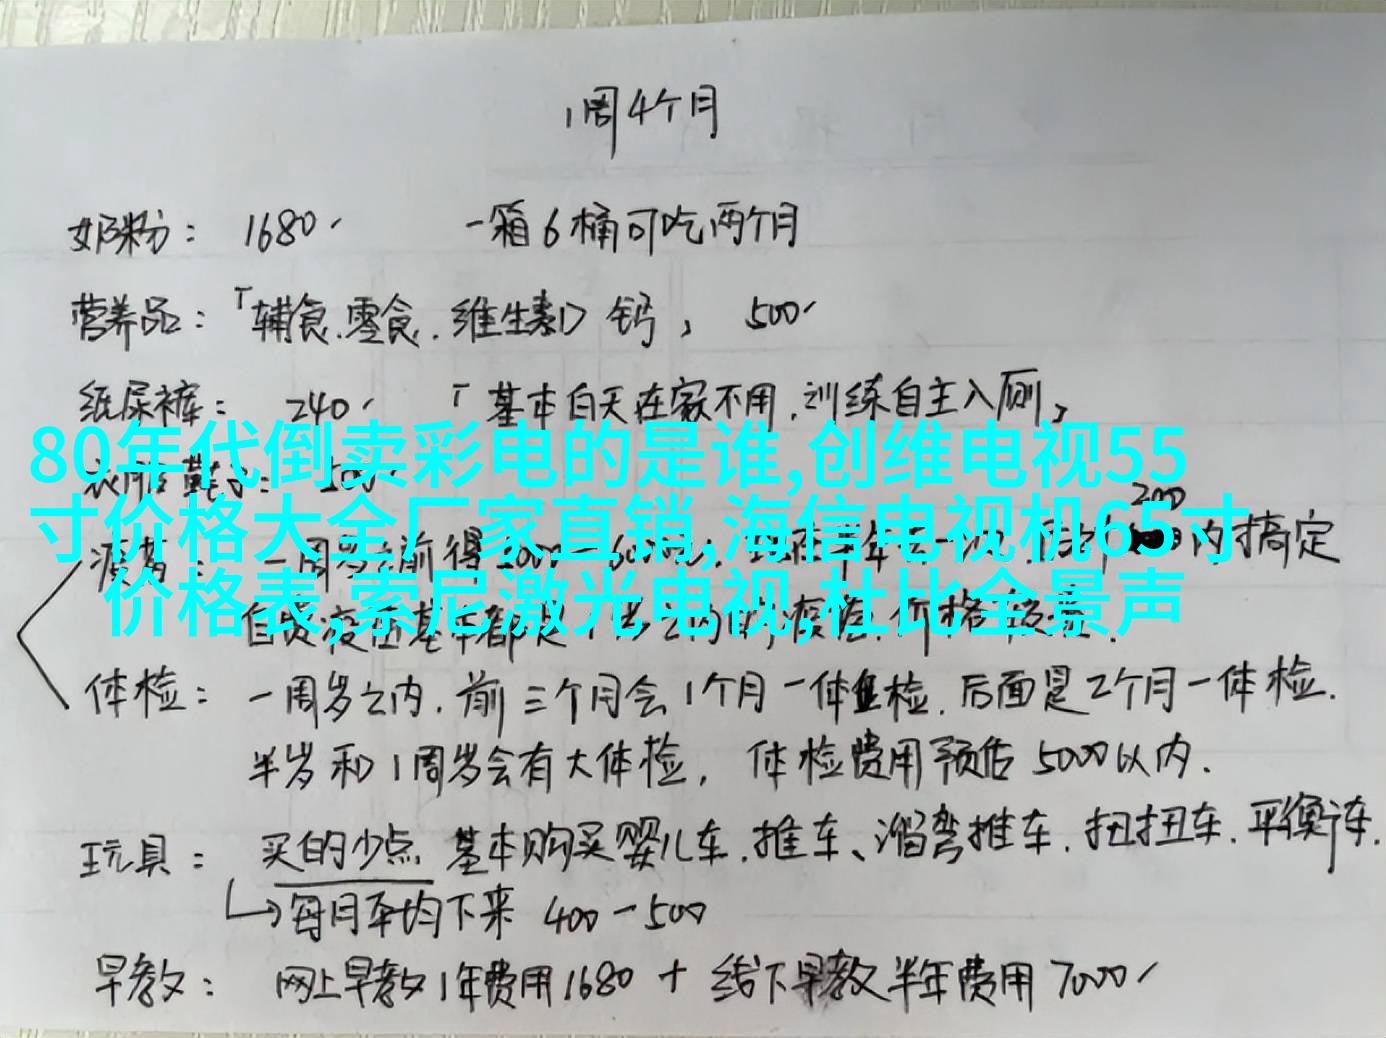 1周4个月
奶粉： 1680 一箱6桶可吃两个月
营养品：「辅食.零食.维生素D 钙, 500
纸尿裤： 240 「基本白天在家不用.训练自主入厕,
80年代倒卖彩电的是谁,创维电视55
衣服鞋子： 200
200
寸价格大全厂家直销,海信电视机65寸
一周岁之前得 内搞定
价格表,索尼激光电视,杜比全景声
体检： 一周岁之内.前三个月会1个月一体检.后面是2个月一体检.
半岁和1周岁会有大体检, 体检费用预估5000以内.
玩具： 买的少点 基本购买婴儿车.推车、溜弯推车.扭扭车.平衡车.
→每月平均下来 400-500
早教： 网上早教1年费用1680 + 线下早教半年费用7000